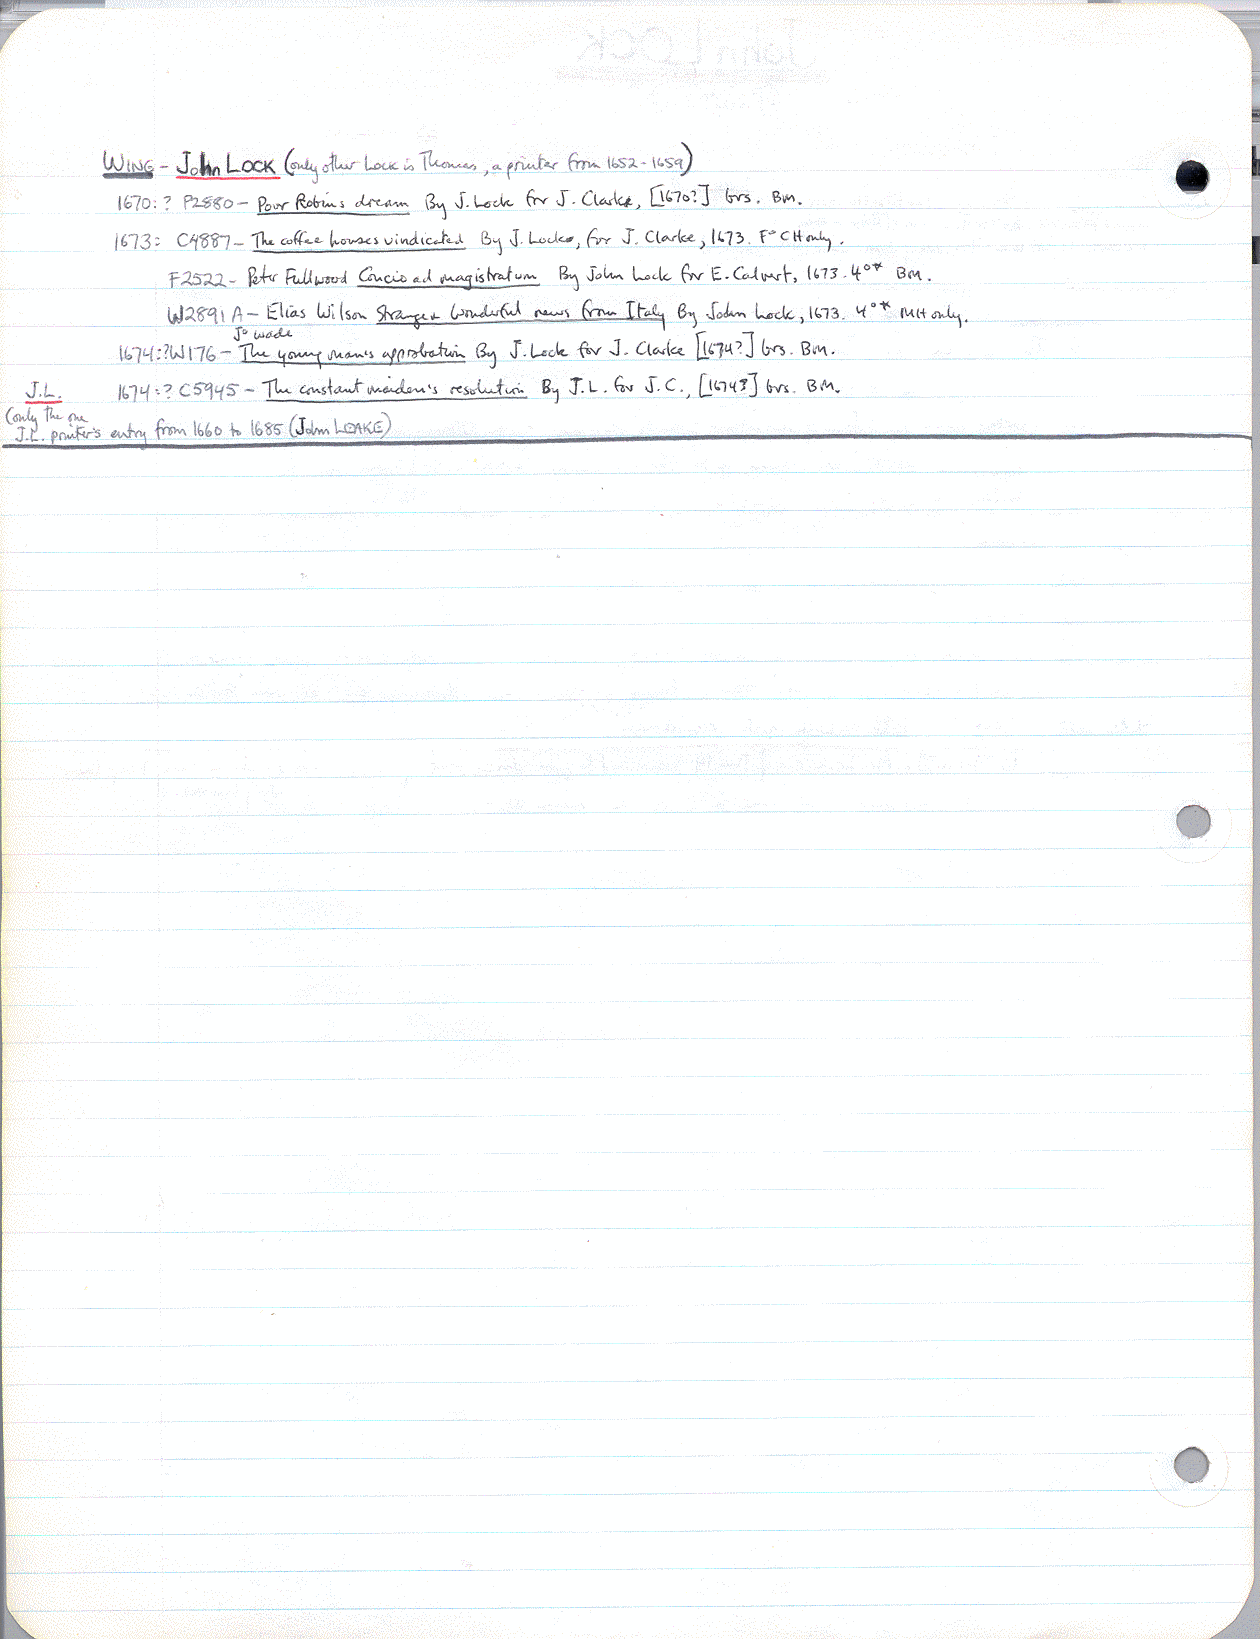 John LOCK
WING - John LOCK (only other Lock is Thomas, a printer from 1652-1659)
1670:? P2880 - Poor Robin's dream By J. Lock for J. Clarke, [1670?] brs. BM.
1673: C4887 - The coffee houses vindicated By J. Locke, for J. Clarke, 1673. F° CH only.
F2522 - Peter Fullwood Concio ad magistratum By John Lock for E. Calvert, 1673. 4°* BM.
W2891A - Elias Wilson Strange & wonderful news from Italy By John Lock, 1673. 4°* MH only.
J° Wade
1674:? W176 - The young man's approbation By J. Lock for J. Clarke [1674?] brs. BM.
J.L. 1674:? C5945 - The constant maiden's resolution By J.L. for J.C., [1674?] brs. BM.
(only the one
J.L. printer's entry from 1660 to 1685 (John LEAKE)